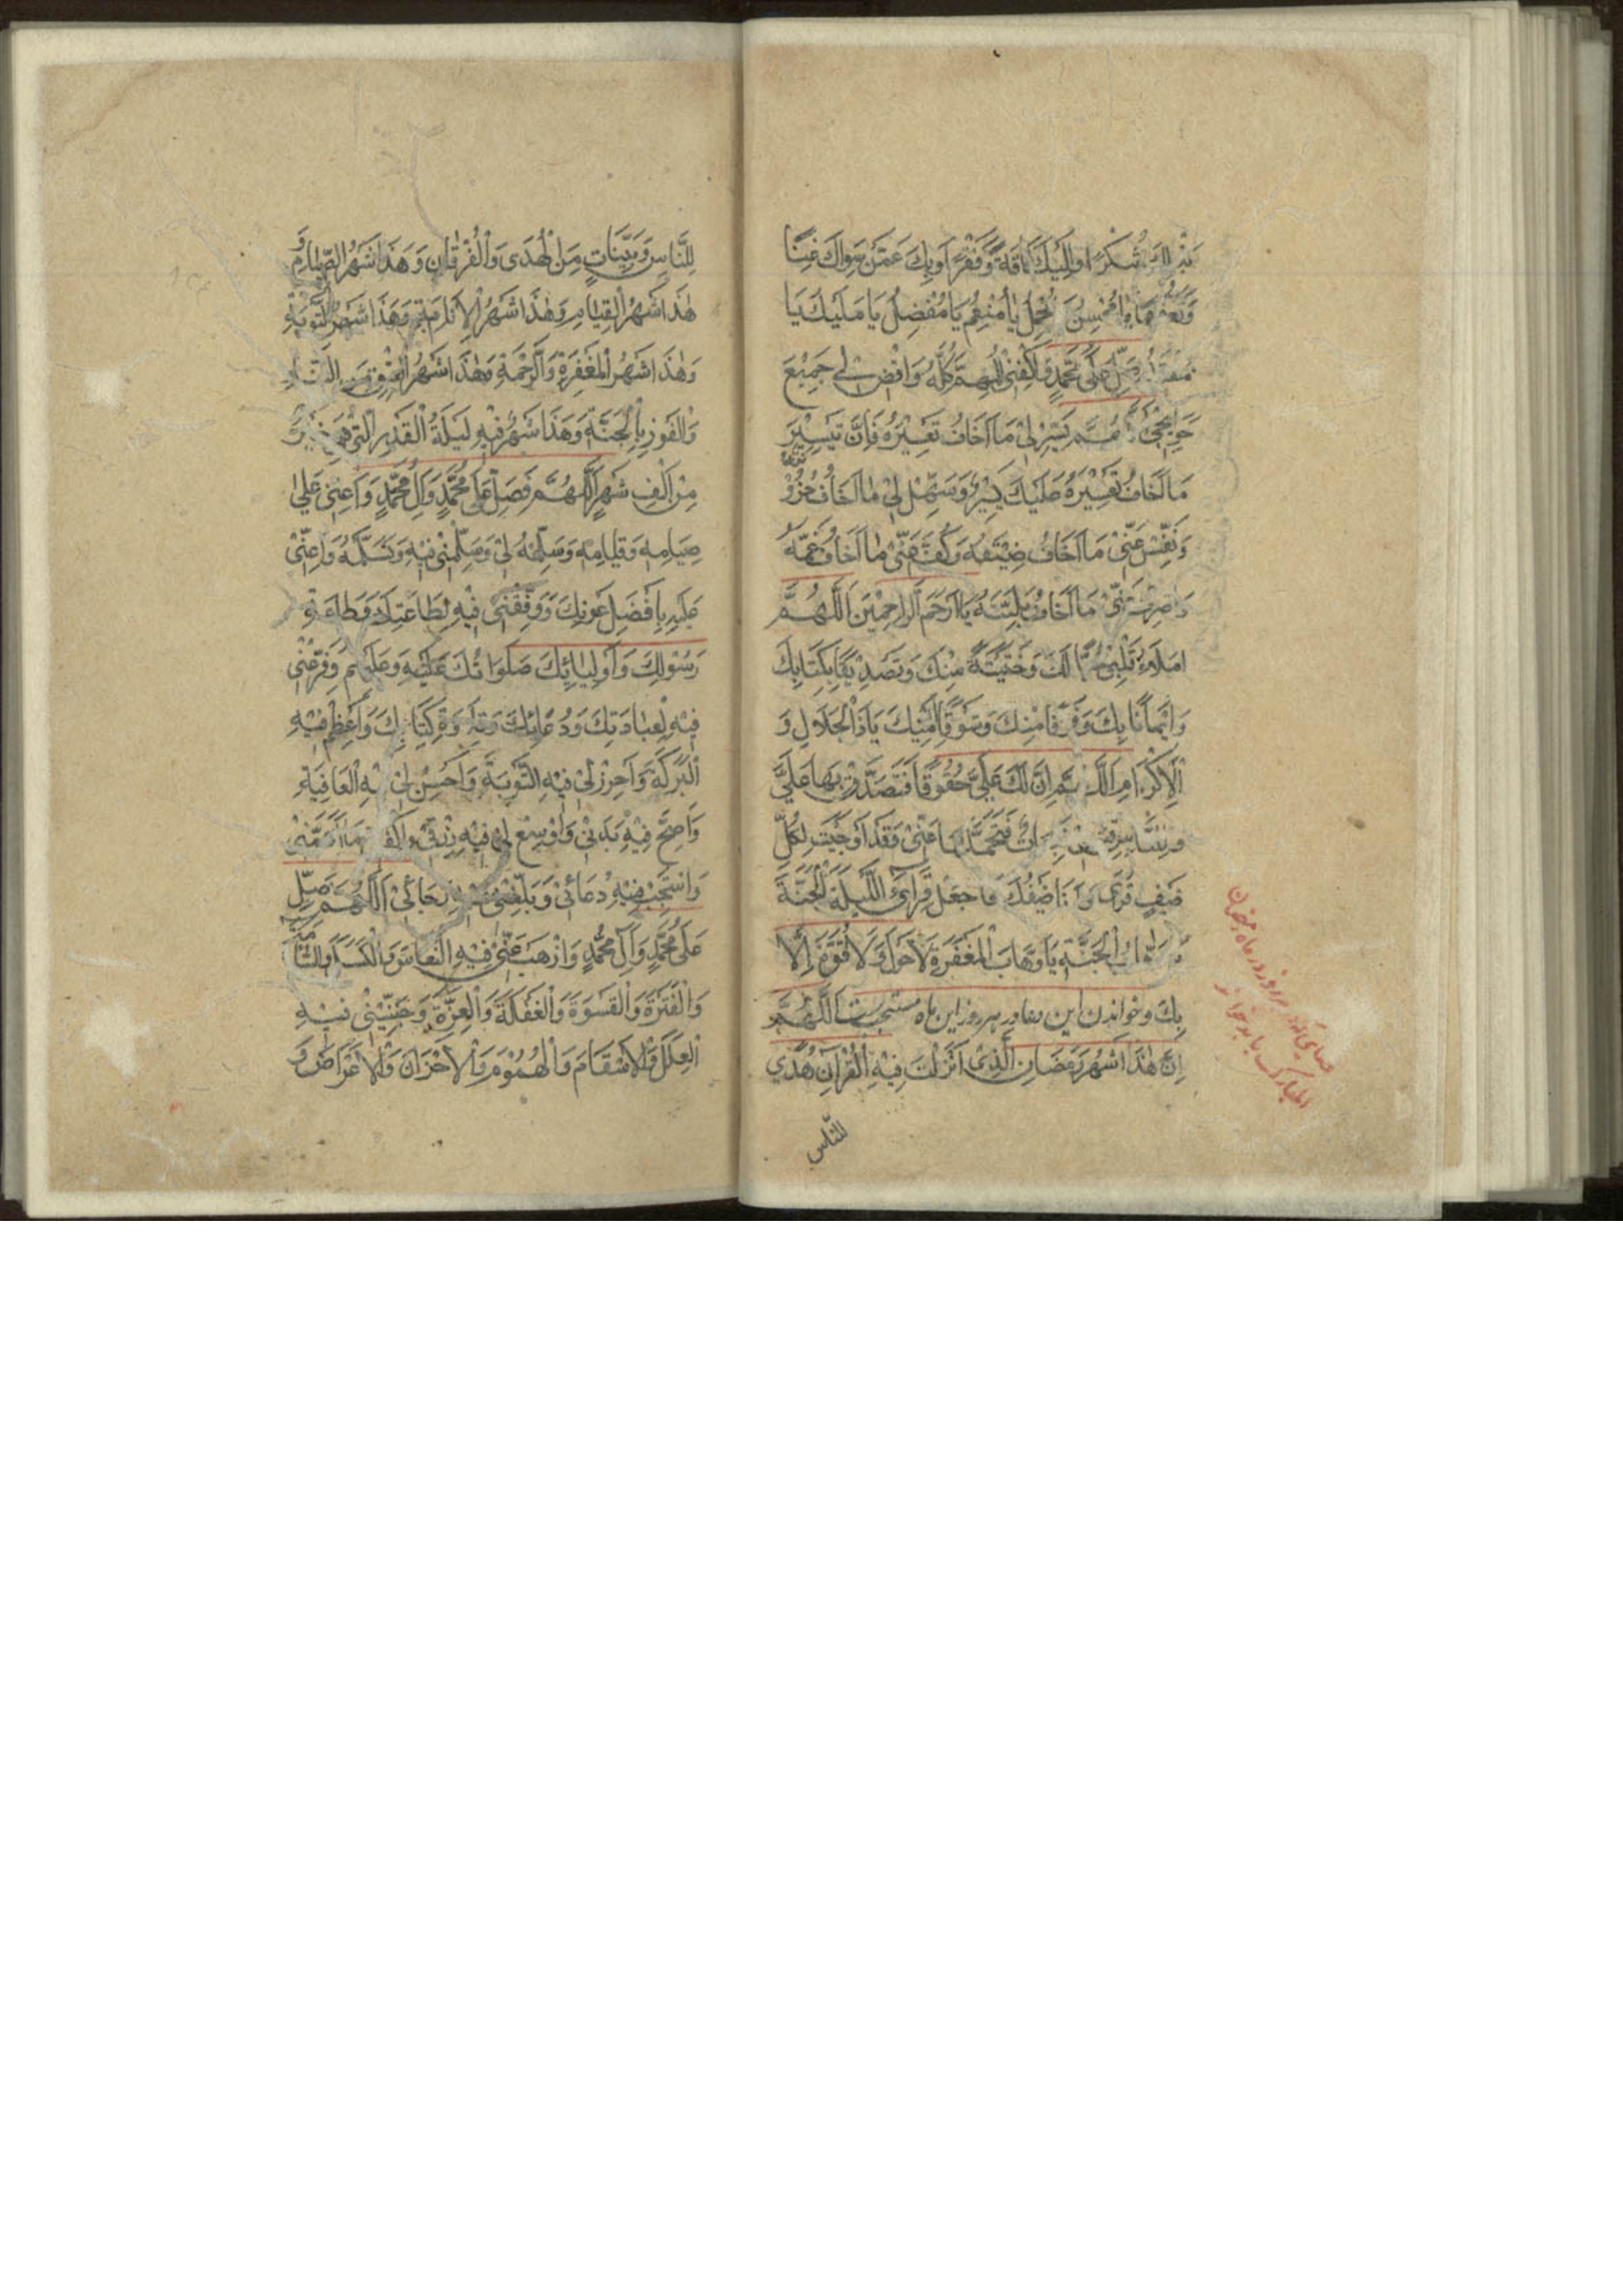 شُكْرًا وَاِلَيْكَ فَاقَةً وَفَقْرًا وَبِكَ عَمَّنْ سِوَاكَ غِنًا
يَا مُحْسِنُ يَا مُجْمِلُ يَا مُنْعِمُ يَا مُفْضِلُ يَا مَلِيكُ يَا
صَلِّ عَلَى مُحَمَّدٍ وَاكْفِنِي الْمُهِمَّ كُلَّهُ وَاقْضِ لِي جَمِيْعَ
حَوَائِجِي اللّٰهُمَّ يَسِّرْ لِيْ مَا اَخَافُ تَعْسِيْرَهُ فَاِنَّ تَيْسِيْرَ
مَا اَخَافُ تَعْسِيْرَهُ عَلَيْكَ يَسِيْرٌ وَسَهِّلْ لِيْ مَا اَخَافُ حُزُوْنَتَهُ
وَنَفِّسْ عَنِّيْ مَا اَخَافُ ضِيْقَهُ وَكُفَّ عَنِّيْ مَا اَخَافُ غَمَّهُ
وَاصْرِفْ عَنِّيْ مَا اَخَافُ بَلِيَّتَهُ يَا اَرْحَمَ الرَّاحِمِيْنَ اَللّٰهُمَّ
امْلَاءْ قَلْبِيْ حُبًّا لَكَ وَخَشْيَةً مِنْكَ وَتَصْدِيْقًا بِكِتَابِكَ
وَاِيْمَانًا بِكَ وَفَرَقًا مِنْكَ وَشَوْقًا اِلَيْكَ يَا ذَا الْجَلَالِ وَ
الْاِكْرَامِ اَللّٰهُمَّ اِنَّ لَكَ عَلَيَّ حُقُوْقًا فَتَصَدَّقْ بِهَا عَلَيَّ
وَلِلنَّاسِ فَتَحَمَّلْهَا عَنِّيْ وَقَدْ اَوْجَبْتَ لِكُلِّ
ضَيْفٍ قُرًى وَاَنَا ضَيْفُكَ فَاجْعَلْ قِرَايَ اللَّيْلَةَ الْجَنَّةَ
يَا وَهَّابَ الْجَنَّةِ يَا وَهَّابَ الْمَغْفِرَةِ لَا حَوْلَ وَلَا قُوَّةَ اِلَّا
بِكَ وخواندن اين دعا در هر روز اين ماه مستحب است اَللّٰهُمَّ
اِنَّ هٰذَا شَهْرُ رَمَضَانَ الَّذِيْ اَنْزَلْتَ فِيْهِ الْقُرْآنَ هُدًي
للنّاس
لِلنَّاسِ وَبَيِّنَاتٍ مِنَ الْهُدَى وَالْفُرْقَانِ وَهَذَا شَهْرُ الصِّيَامِ وَ
هٰذَا شَهْرُ الْقِيَامِ وَهٰذَا شَهْرُ الْاِنَابَةِ وَهٰذَا شَهْرُ التَّوْبَةِ
وَهٰذَا شَهْرُ الْمَغْفِرَةِ وَالرَّحْمَةِ وَهٰذَا شَهْرُ الْعِتْقِ مِنَ النَّارِ
وَالْفَوْزِ بِالْجَنَّةِ وَهَذَا شَهْرٌ فِيْهِ لَيْلَةُ الْقَدْرِ الَّتِيْ هِيَ خَيْرٌ
مِنْ اَلْفِ شَهْرٍ اَللّٰهُمَّ فَصَلِّ عَلَى مُحَمَّدٍ وَآلِ مُحَمَّدٍ وَاَعِنِّيْ عَلَىٰ
صِيَامِهِ وَقِيَامِهِ وَسَلِّمْهُ لِيْ وَسَلِّمْنِيْ فِيْهِ وَتَسَلَّمْهُ وَاَعِنِّيْ
عَلَيْهِ بِاَفْضَلِ عَوْنِكَ وَوَفِّقْنِيْ فِيْهِ لِطَاعَتِكَ وَطَاعَةِ
رَسُوْلِكَ وَاَوْلِيَائِكَ صَلَوَاتُكَ عَلَيْهِ وَعَلَيْهِمْ وَفَرِّغْنِيْ
فِيْهِ لِعِبَادَتِكَ وَدُعَائِكَ وَتِلَاوَةِ كِتَابِكَ وَاَعْظِمْ فِيْهِ
الْبَرَكَةَ وَاَحْرِزْ لِيْ فِيْهِ التَّوْبَةَ وَاَحْسِنْ لِيْ فِيْهِ الْعَافِيَةَ
وَاَصِحَّ فِيْهِ بَدَنِيْ وَاَوْسِعْ لِيْ فِيْهِ رِزْقِيْ وَاكْفِنِيْ مَا اَهَمَّنِيْ
وَاسْتَجِبْ فِيْهِ دُعَائِيْ وَبَلِّغْنِيْ فِيْهِ رَجَائِيْ اَللّٰهُمَّ صَلِّ
عَلَى مُحَمَّدٍ وَآلِ مُحَمَّدٍ وَاذْهَبْ عَنِّيْ فِيْهِ النُّعَاسَ وَالْكَسَلَ وَالسَّاْمَةَ
وَالْفَتْرَةَ وَالْقَسْوَةَ وَالْغَفْلَةَ وَالْغِرَّةَ وَجَنِّبْنِيْ فِيْهِ
الْعِلَلَ وَالْاَسْقَامَ وَالْهُمُوْمَ وَالْاَحْزَانَ وَالْاَعْرَاضَ وَ